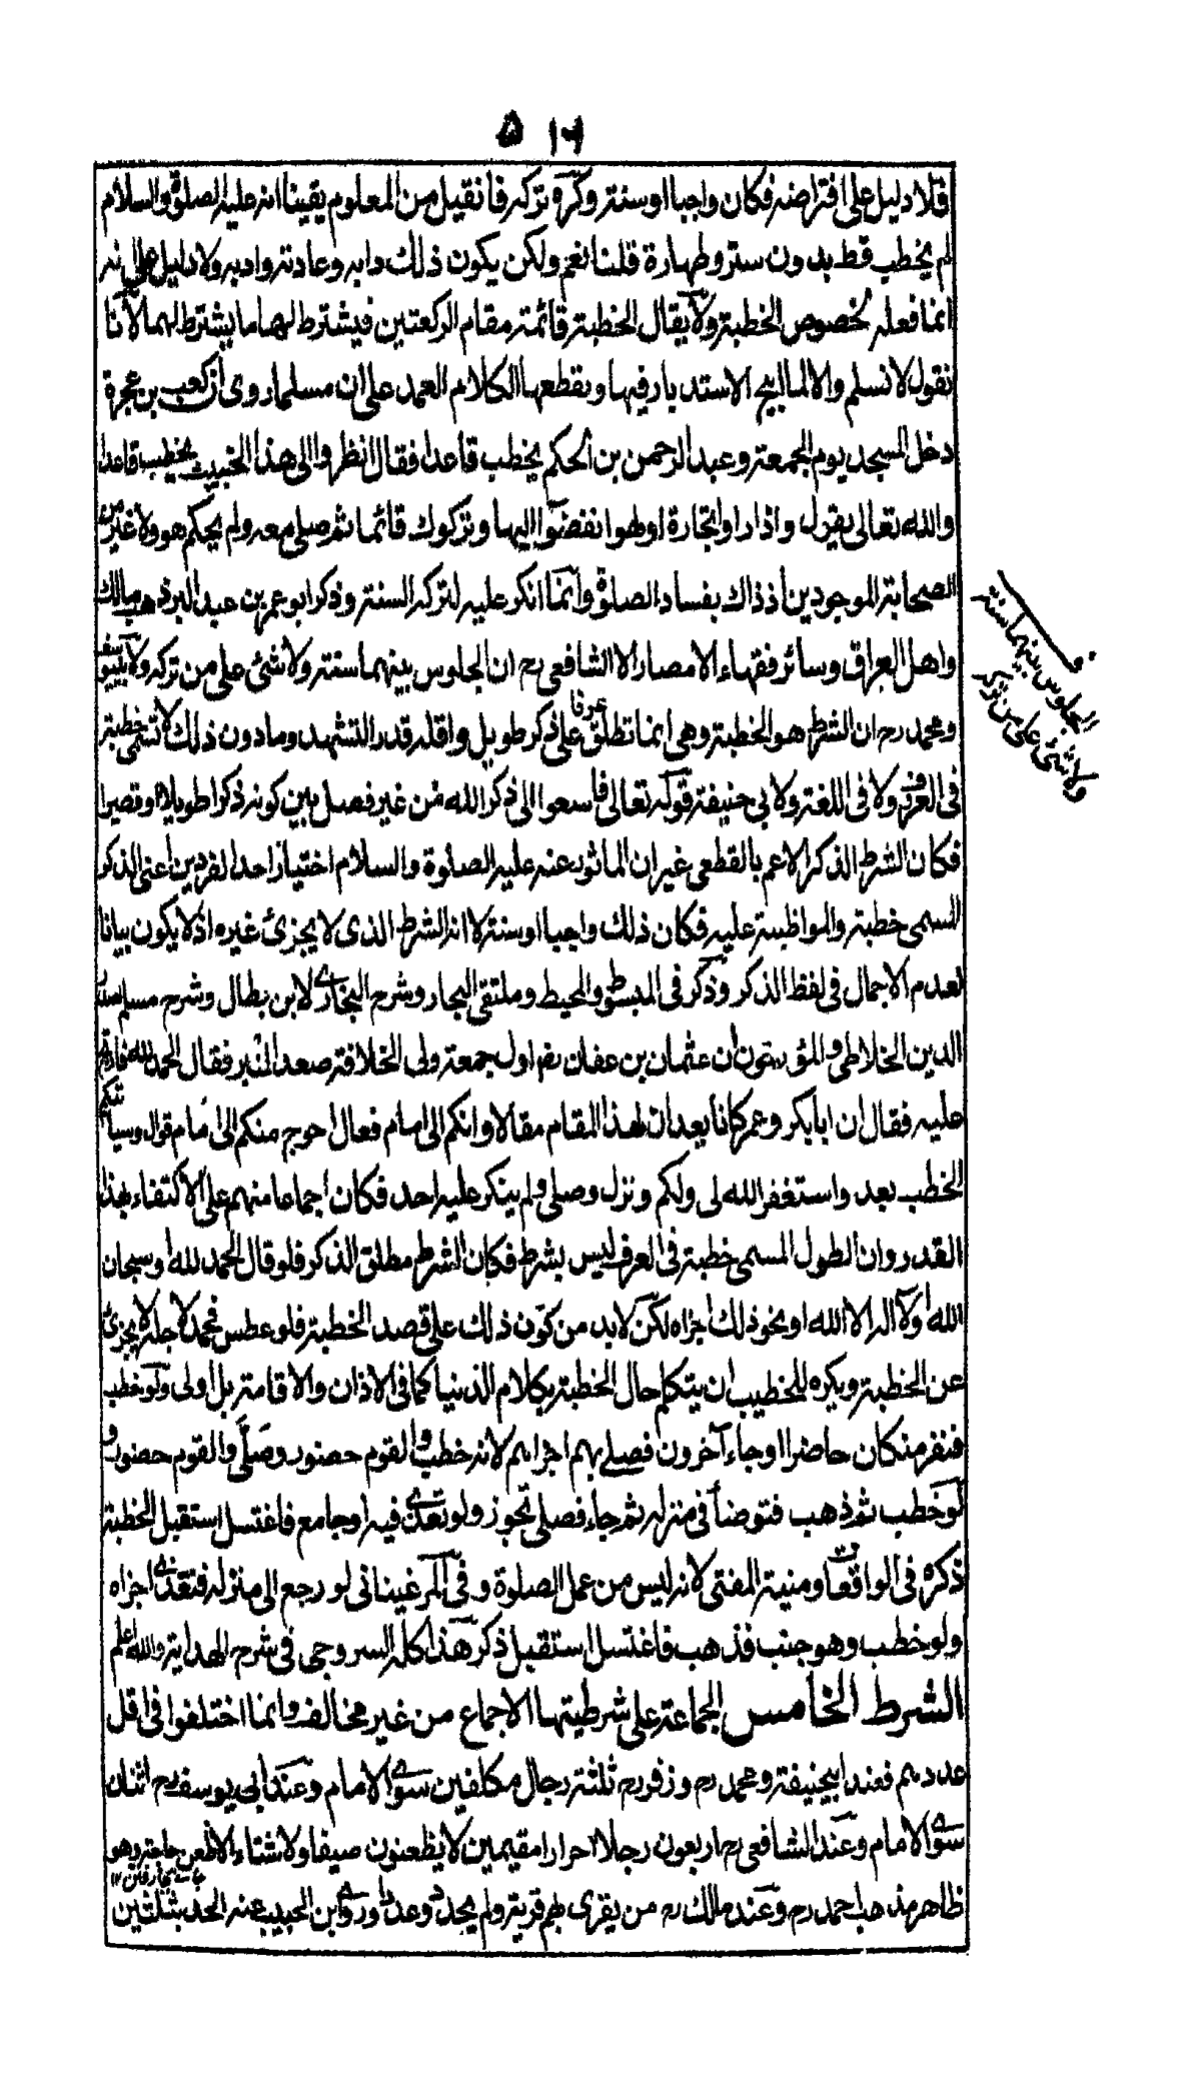 ۵۱۶
فلا دليل على افتراضه فكان واجبا او سنة وكره تركه فان قيل من المعلوم يقينا انه عليه الصلوة والسلام
لم يخطب قط بدون ستر وطهارة قلنا نعم ولكن يكون ذلك دابه وعادته وادبه ولا دليل على انه
انما فعله لخصوص الخطبة ولا يقال الخطبة قائمة مقام الركعتين فيشترط لها ما يشترط لهما لانا
نقول لا نسلم والا لما ابيح الاستدبار فيها وبقطعها الكلام العمد على ان مسلما روى ان كعب بن عجرة
دخل المسجد يوم الجمعة وعبد الرحمن بن الحكم يخطب قاعدا فقال انظروا الى هذا الخبيث يخطب قاعدا
والله تعالى يقول واذا راوا تجارة او لهوا انفضوا اليها وتركوك قائما ثم صلى معه ولم يحكم هو ولا غيره من
الصحابة الموجودين اذ ذاك بفساد الصلوة وانما انكر عليه لتركه السنة وذكر ابو عمر بن عبد البر ذهب مالك
واهل العراق وسائر فقهاء الامصار الا الشافعى رح ان الجلوس بينهما سنة ولا شئ على من تركه ولابى يوسف
ومحمد رح ان الشرط هو الخطبة وهى انما تطلق عرفا على ذكر طويل واقله قدر التشهد وما دون ذلك لا تسمى خطبة
فى العرف ولا فى اللغة ولابى حنيفة قوله تعالى فاسعوا الى ذكر الله من غير فصل بين كونه ذكرا طويلا او قصيرا
فكان الشرط الذكر الاعم بالقطعى غير ان الماثور عنه عليه الصلوة والسلام اختيار احد الفردين اعنى الذكر
المسمى خطبة والمواظبة عليه فكان ذلك واجبا او سنة لا انه الشرط الذى لا يجزئ غيره اذ لا يكون بيانا
لعدم الاجمال فى لفظ الذكر وذكر فى المبسوط والمحيط وملتقى البحار وشرح البخارى لابن بطال وشرح مسلم لصدر
الدين الخلاطى والمؤرخون ان عثمان بن عفان رض اول جمعة ولى الخلافة صعد المنبر فقال الحمد لله فارتج
عليه فقال ان ابا بكر وعمر كانا يعدان لهذا المقام مقالا وانكم الى امام فعال احوج منكم الى امام قوال وسياتيكم
الخطب بعد واستغفر الله لى ولكم ونزل وصلى ولم ينكر عليه احد فكان اجماعا منهم على الاكتفاء بهذا
القدر وان الطول المسمى خطبة فى العرف ليس بشرط فكان الشرط مطلق الذكر فلو قال الحمد لله او سبحان
الله او لا اله الا الله او نحو ذلك اجزاه لكن لا بد من كون ذلك على قصد الخطبة فلو عطس فحمد لاجله لا يجزئ
عن الخطبة ويكره للخطيب ان يتكلم حال الخطبة بكلام الدنيا كما فى الاذان والاقامة بل اولى ولو خطب
فنفر من كان حاضرا وجاء آخرون فصلى بهم اجزاهم لانه خطب والقوم حضور وصلى والقوم حضور و
لو خطب ثم ذهب فتوضأ فى منزله ثم جاء فصلى تجوز ولو تغدى فيه او جامع فاغتسل استقبل الخطبة
ذكره فى الواقعات ومنية المفتى لانه ليس من عمل الصلوة وفى المرغينانى لو رجع الى منزله فتغدى اجزاه
ولو خطب وهو جنب فذهب فاغتسل استقبل ذكر هذا كله السروجى فى شرح الهداية والله اعلم
الشرط الخامس الجماعة على شرطيتها الاجماع من غير مخالف وانما اختلفوا فى اقل
عددهم فعند ابيحنيفة ومحمد رح وزفر رح ثلثة رجال مكلفين سوى الامام وعند ابى يوسف رح اثنان
سوى الامام وعند الشافعى رح اربعون رجلا احرارا مقيمين لا يظعنون صيفا ولا شتاء الا ظعن حاجة وهو
ظاهر مذهب احمد رح وعند مالك رح من يقرى بهم قرية ولم يحد وعددا وروى ابن الحبيب عنه الحد بثلثين
و الجلوس بينهما سنة
ولا شئ على من تركه